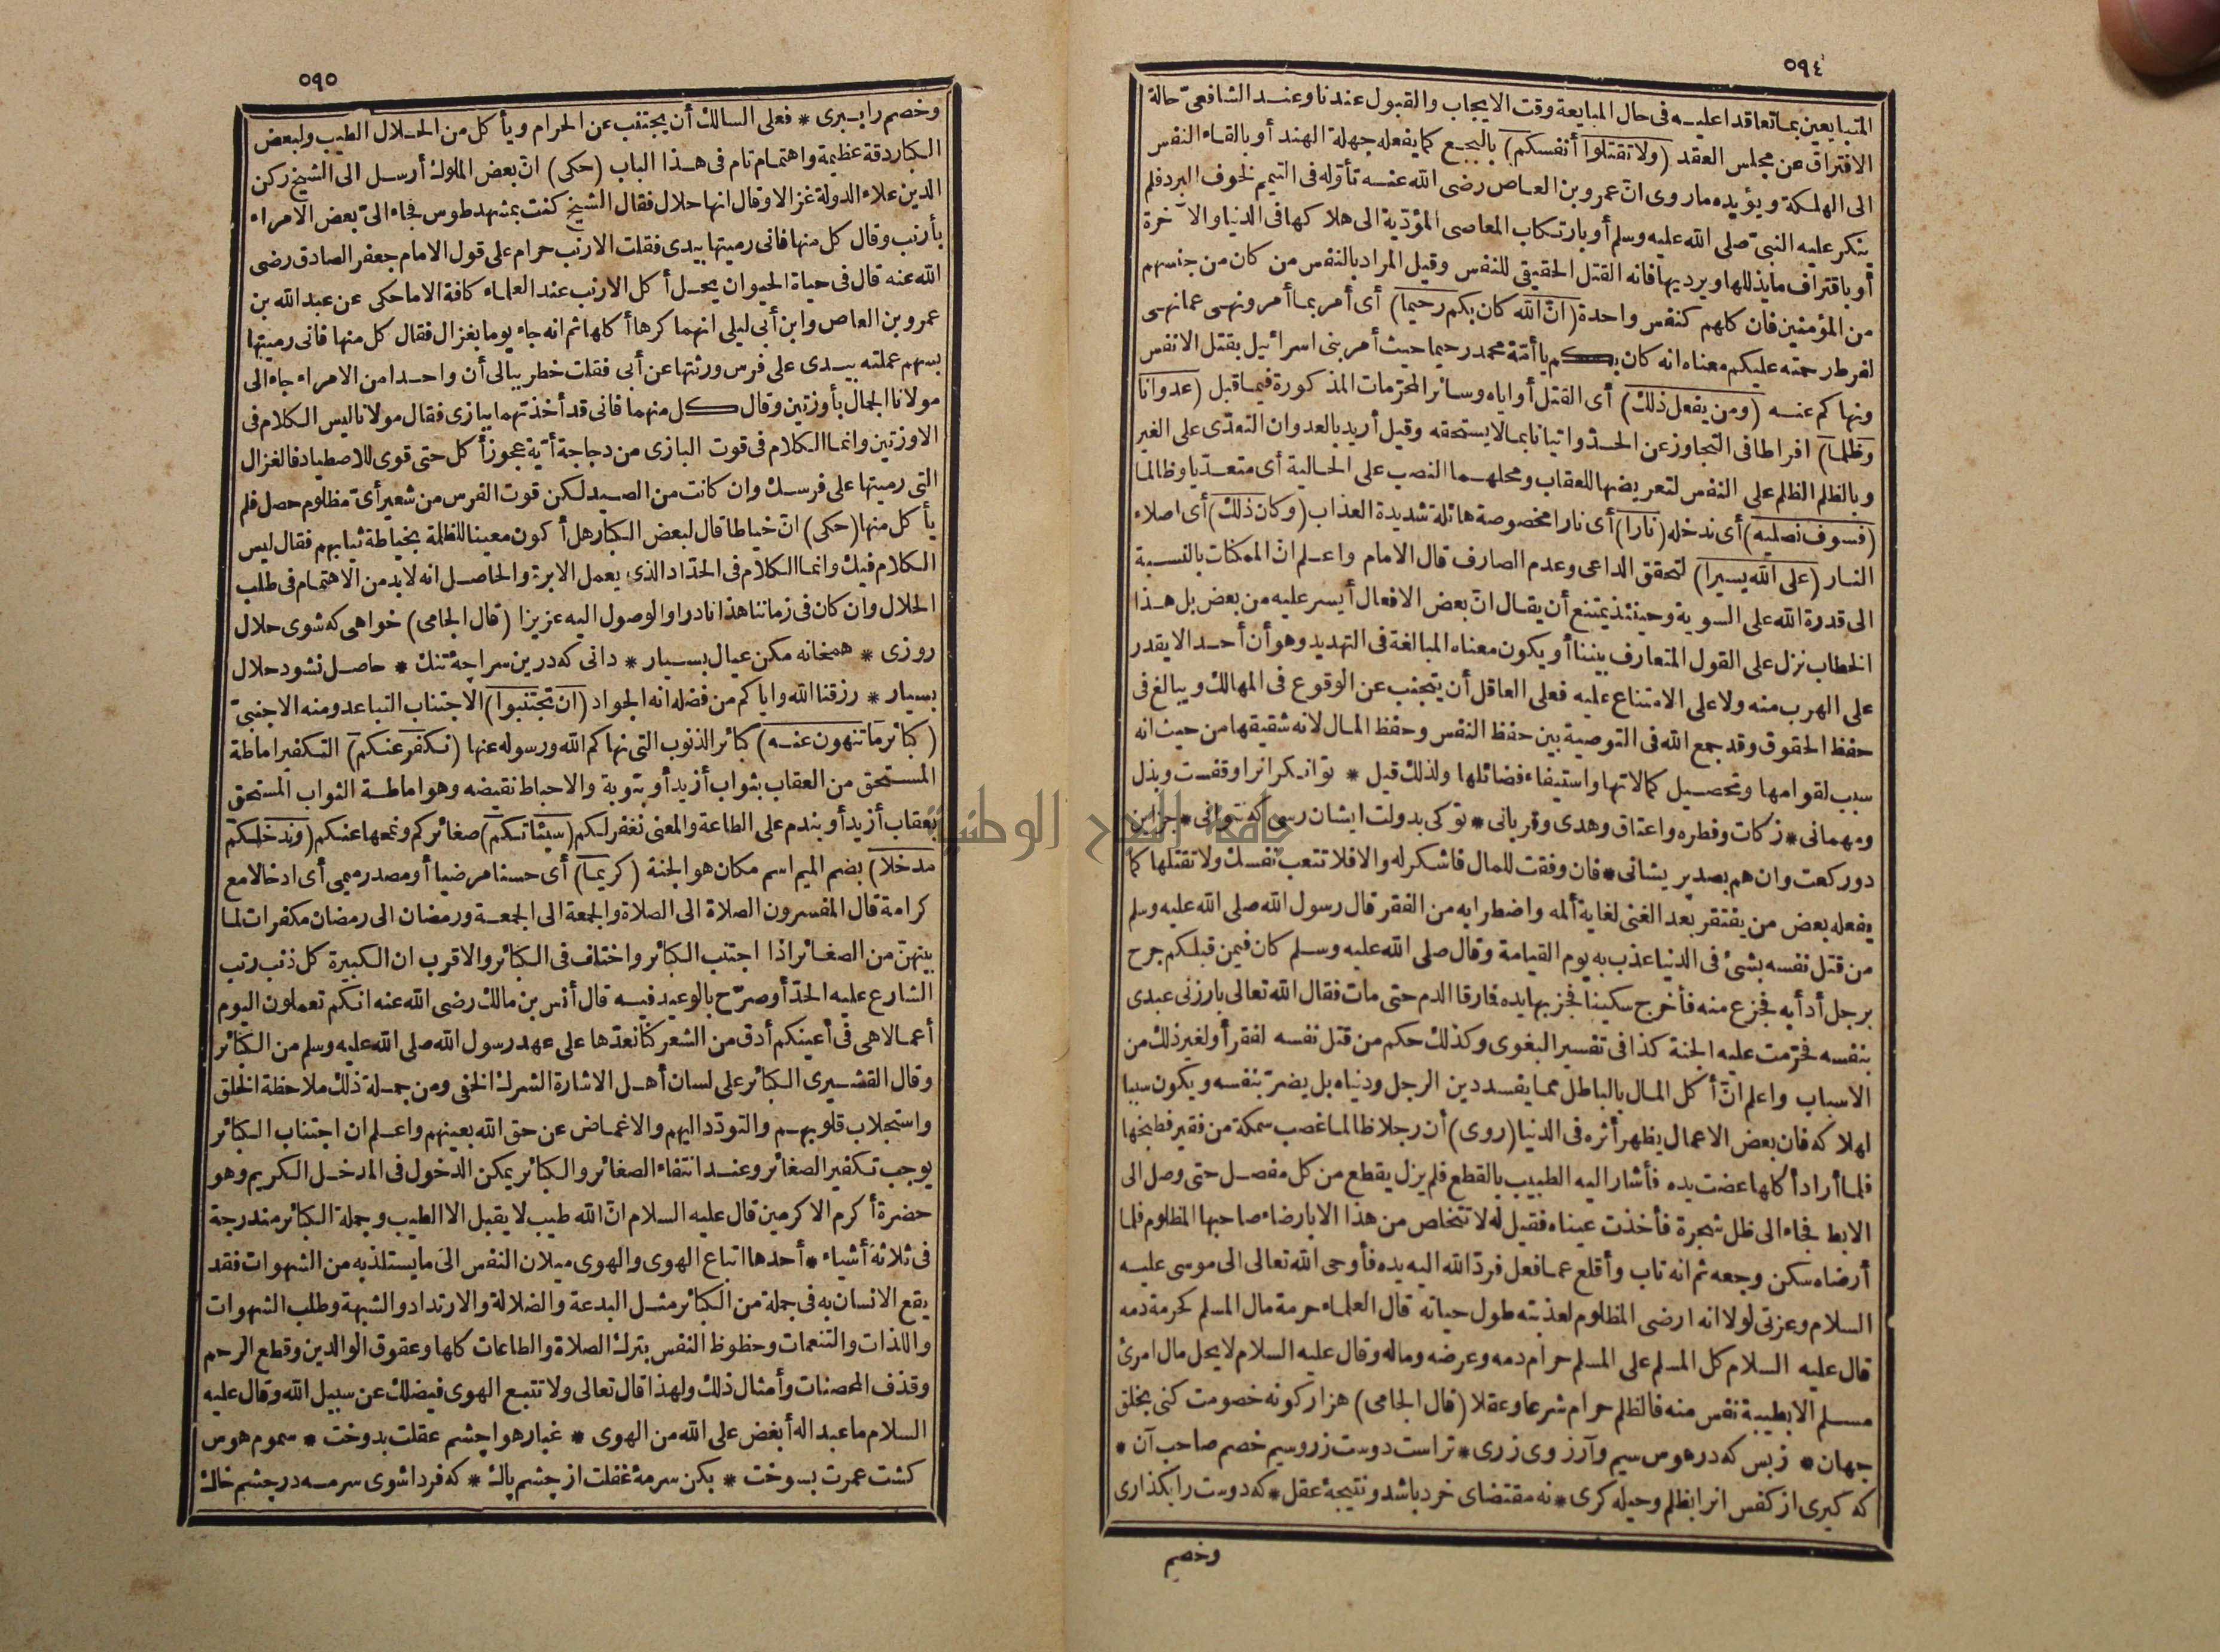 ٥٩٤
المتبايعين بما تعاقدا عليه فى حال المبايعة وقت الايجاب والقبول عندنا وعند الشافعىّ حالة
الافتراق عن مجلس العقد (ولا تقتلوا أنفسكم) بالبخع كما يفعله جهلة الهند أو بالقاء النفس
الى الهلكة ويؤيده ما روى انّ عمرو بن العاص رضى الله عنه تأوّله فى التيمم لخوف البرد فلم
ينكر عليه النبىّ صلى الله عليه وسلم أو بارتكاب المعاصى المؤدّية الى هلاكها فى الدنيا والآخرة
أو باقتراف ما يذللها ويرديها فانه القتل الحقيقى للنفس وقيل المراد بالنفس من كان من جنسهم
من المؤمنين فان كلهم كنفس واحدة (انّ الله كان بكم رحيما) أى أمر بما أمر ونهى عما نهى
لفرط رحمته عليكم معناه انه كان بكم يا أمّة محمد رحيما حيث أمر بنى اسرائيل بقتل الانفس
ونهاكم عنه (ومن يفعل ذلك) أى القتل أو اياه وسائر المحرّمات المذكورة فيما قبل (عدوانا
وظلما) افراطا فى التجاوز عن الحدّ واتيانا بما لا يستحقه وقيل أريد بالعدوان التعدّى على الغير
وبالظلم الظلم على النفس لتعريضها للعقاب ومحلهما النصب على الحالية أى متعدّيا وظالما
(فسوف نصليه) أى ندخله (نارا) أى نارا مخصوصة هائلة شديدة العذاب (وكان ذلك) أى اصلاء
النار (على الله يسيرا) لتحقق الداعى وعدم الصارف قال الامام واعلم انّ الممكنات بالنسبة
الى قدرة الله على السوية وحينئذ يمتنع أن يقال انّ بعض الافعال أيسر عليه من بعض بل هذا
الخطاب نزل على القول المتعارف بيننا أو يكون معناه المبالغة فى التهديد وهو أن أحدا لا يقدر
على الهرب منه ولا على الامتناع عليه فعلى العاقل أن يتجنب عن الوقوع فى المهالك ويبالغ فى
حفظ الحقوق وقد جمع الله فى التوصية بين حفظ النفس وحفظ المال لانه شقيقها من حيث انه
سبب لقوامها وتحصيل كمالاتها واستيفاء فضائلها ولذلك قيل * توانكرانرا وقفست وبذل
ومهمانى * زكات وفطره واعتاق وهدى وقربانى * توكى بدولت ايشان رسى كه نتوانى * جزاين
دوركعت وان هم بصد پريشانى * فان وفقت للمال فاشكر له والا فلا تتعب نفسك ولا تقتلها كما
يفعله بعض من يفتقر بعد الغنى لغاية ألمه واضطرابه من الفقر قال رسول الله صلى الله عليه وسلم
من قتل نفسه بشئ فى الدنيا عذب به يوم القيامة وقال صلى الله عليه وسلم كان فيمن قبلكم جرح
برجل أدأبه فجزع منه فأخرج سكينا فجز بها يده فما رقأ الدم حتى مات فقال الله تعالى بارزنى عبدى
بنفسه فحرّمت عليه الجنة كذا فى تفسير البغوى وكذلك حكم من قتل نفسه لفقر أو لغير ذلك من
الاسباب واعلم انّ أكل المال بالباطل مما يفسد دين الرجل ودنياه بل يضرّ بنفسه ويكون سببا
لهلاكه فان بعض الاعمال يظهر أثره فى الدنيا (روى) أن رجلا ظالما غصب سمكة من فقير فطبخها
فلما أراد أكلها عضت يده فأشار اليه الطبيب بالقطع فلم يزل يقطع من كل مفصل حتى وصل الى
الابط فجاء الى ظل شجرة فأخذت عيناه فقيل له لا تتخلص من هذا الا بارضاء صاحبها المظلوم فلما
أرضاه سكن وجعه ثم انه تاب وأقلع عما فعل فردّ الله اليه يده فأوحى الله تعالى الى موسى عليه
السلام وعزتى لولا انه ارضى المظلوم لعذبته طول حياته قال العلماء حرمة مال المسلم كحرمة دمه
قال عليه السلام كل المسلم على المسلم حرام دمه وعرضه وماله وقال عليه السلام لا يحل مال امرئ
مسلم الا بطيبة نفس منه فالظلم حرام شرعا وعقلا (قال الجامى) هزار كونه خصومت كنى بخلق
جهان * زبس كه در هوس سيم وآرزوى زرى * تراست دوست زر وسيم خصم صاحب آن *
كه كيرى از كفس انرا بظلم وحيله كرى * نه مقتضاى خرد باشد ونتيجهٔ عقل * كه دوست را بكذارى
وخصم
٥٩٥
وخصم را ببرى * فعلى السالك أن يجتنب عن الحرام ويأكل من الحلال الطيب ولبعض
الكبار دقة عظيمة واهتمام تام فى هذا الباب (حكى) انّ بعض الملوك أرسل الى الشيخ ركن
الدين علاء الدولة غزالا وقال انها حلال فقال الشيخ كنت بمشهد طوس فجاء الىّ بعض الامراء
بأرنب وقال كل منها فانى رميتها بيدى فقلت الارنب حرام على قول الامام جعفر الصادق رضى
الله عنه قال فى حياة الحيوان يحل أكل الارنب عند العلماء كافة الا ما حكى عن عبد الله بن
عمرو بن العاص وابن أبى ليلى انهما كرها أكلها ثم انه جاء يوما بغزال فقال كل منها فانى رميتها
بسهم عملته بيدى على فرس ورثتها عن أبى فقلت خطر ببالى أن واحدا من الامراء جاء الى
مولانا الجمال بأوزتين وقال كل منهما فانى قد أخذتهما ببازى فقال مولانا ليس الكلام فى
الاوزتين وانما الكلام فى قوت البازى من دجاجة أيّة عجوز أكل حتى قوى للاصطياد فالغزال
التى رميتها على فرسك وان كانت من الصيد لكن قوت الفرس من شعير أىّ مظلوم حصل فلم
يأكل منها (حكى) انّ خياطا قال لبعض الكبار هل أكون معينا للظلمة بخياطة ثيابهم فقال ليس
الكلام فيك وانما الكلام فى الحدّاد الذى يعمل الابرة والحاصل انه لا بد من الاهتمام فى طلب
الحلال وان كان فى زماننا هذا نادرا والوصول اليه عزيزا (قال الجامى) خواهى كه شوى حلال
روزى * همخانه مكن عيال بسيار * دانى كه درين سراچهٔ تنك * حاصل نشود حلال
بسيار * رزقنا الله واياكم من فضله انه الجواد (ان تجتنبوا) الاجتناب التباعد ومنه الاجنبىّ
(كبائر ما تنهون عنه) كبائر الذنوب التى نهاكم الله ورسوله عنها (نكفر عنكم) التكفير اماطة
المستحق من العقاب بثواب أزيد أو بتوبة والاحباط نقيضه وهو اماطة الثواب المستحق
بعقاب أزيد أو بندم على الطاعة والمعنى نغفر لكم (سيئاتكم) صغائركم ونمحها عنكم (وندخلكم
مدخلا) بضم الميم اسم مكان هو الجنة (كريما) أى حسنا مرضيا أو مصدر ميمى أى ادخالا مع
كرامة قال المفسرون الصلاة الى الصلاة والجمعة الى الجمعة ورمضان الى رمضان مكفرات لما
بينهنّ من الصغائر اذا اجتنب الكبائر واختلف فى الكبائر والاقرب ان الكبيرة كل ذنب رتب
الشارع عليه الحدّ أو صرّح بالوعيد فيه قال أنس بن مالك رضى الله عنه انكم تعملون اليوم
أعمالا هى فى أعينكم أدق من الشعر كنا نعدّها على عهد رسول الله صلى الله عليه وسلم من الكبائر
وقال القشيرى الكبائر على لسان أهل الاشارة الشرك الخفى ومن جملة ذلك ملاحظة الخلق
واستجلاب قلوبهم والتودّد اليهم والاغماض عن حق الله بعينهم واعلم ان اجتناب الكبائر
يوجب تكفير الصغائر وعند انتفاء الصغائر والكبائر يمكن الدخول فى المدخل الكريم وهو
حضرة أكرم الاكرمين قال عليه السلام انّ الله طيب لا يقبل الا الطيب وجملة الكبائر مندرجة
فى ثلاثة أشياء * أحدها اتباع الهوى والهوى ميلان النفس الى ما يستلذ به من الشهوات فقد
يقع الانسان به فى جملة من الكبائر مثل البدعة والضلالة والارتداد والشبهة وطلب الشهوات
واللذات والتنعمات وحظوظ النفس بترك الصلاة والطاعات كلها وعقوق الوالدين وقطع الرحم
وقذف المحصنات وأمثال ذلك ولهذا قال تعالى ولا تتبع الهوى فيضلك عن سبيل الله وقال عليه
السلام ما عبد اله أبغض على الله من الهوى * غبار هوا چشم عقلت بدوخت * سموم هوس
كشت عمرت بسوخت * بكن سرمهٔ غفلت از چشم پاك * كه فردا شوى سرمه در چشم خاك
جامعة النجاح الوطنية